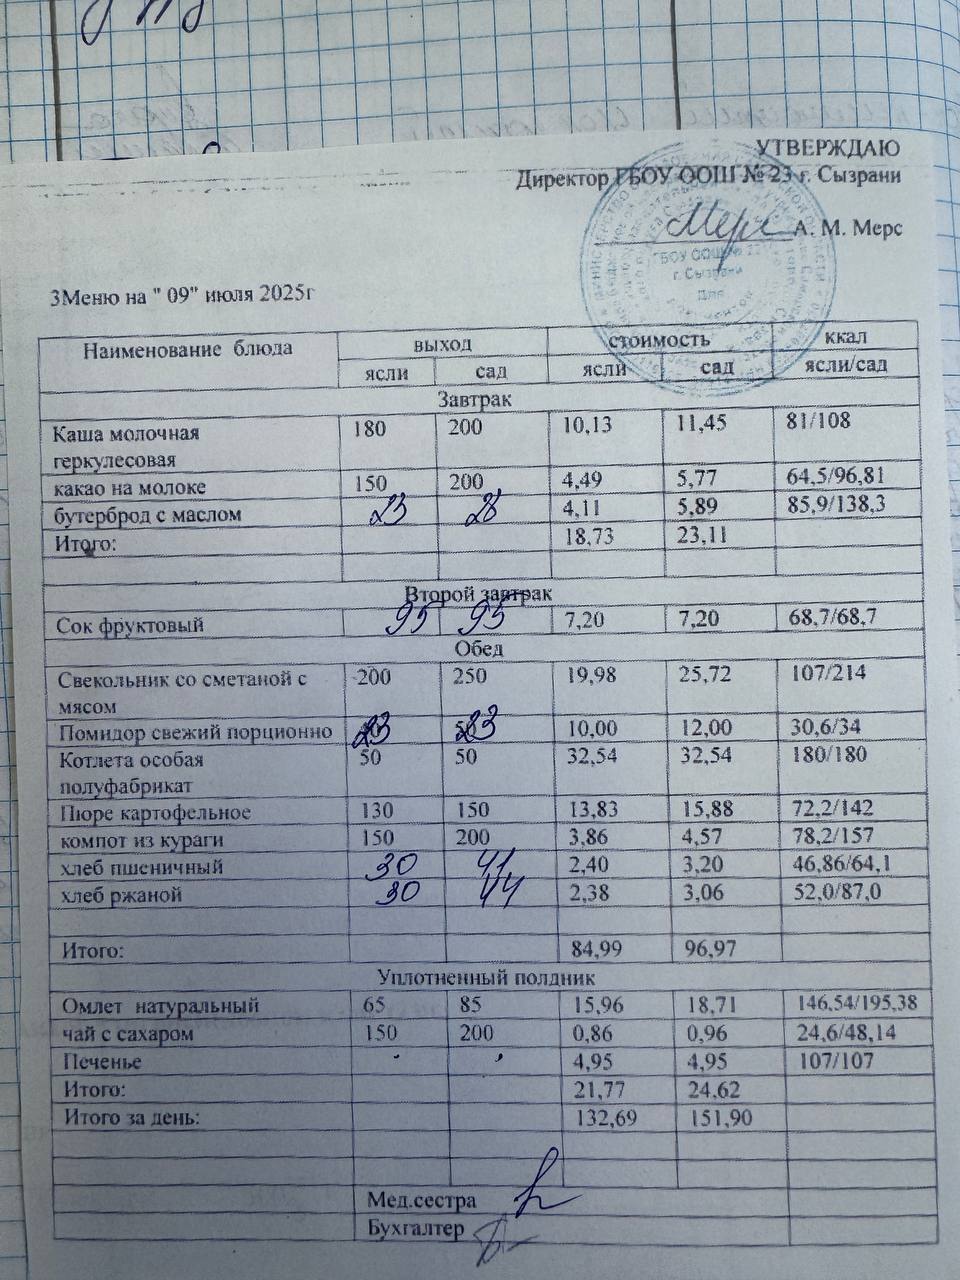 УТВЕРЖДАЮ
Директор ГБОУ ООШ № 23 г. Сызрани
А. М. Мерс
ГБОУ ООШ № 23
г. Сызрани
Для
3Меню на " 09" июля 2025г
Наименование блюда выход стоимость ккал
ясли сад ясли сад ясли/сад
Завтрак
Каша молочная 180 200 10,13 11,45 81/108
геркулесовая
какао на молоке 150 200 4,49 5,77 64,5/96,81
бутерброд с маслом 23 28 4,11 5,89 85,9/138,3
Итого: 18,73 23,11
Второй завтрак
Сок фруктовый 95 95 7,20 7,20 68,7/68,7
Обед
Свекольник со сметаной с 200 250 19,98 25,72 107/214
мясом
Помидор свежий порционно 23 23 10,00 12,00 30,6/34
Котлета особая 50 50 32,54 32,54 180/180
полуфабрикат
Пюре картофельное 130 150 13,83 15,88 72,2/142
компот из кураги 150 200 3,86 4,57 78,2/157
хлеб пшеничный 30 41 2,40 3,20 46,86/64,1
хлеб ржаной 30 44 2,38 3,06 52,0/87,0
Итого: 84,99 96,97
Уплотненный полдник
Омлет натуральный 65 85 15,96 18,71 146,54/195,38
чай с сахаром 150 200 0,86 0,96 24,6/48,14
Печенье 4,95 4,95 107/107
Итого: 21,77 24,62
Итого за день: 132,69 151,90
Мед.сестра
Бухгалтер